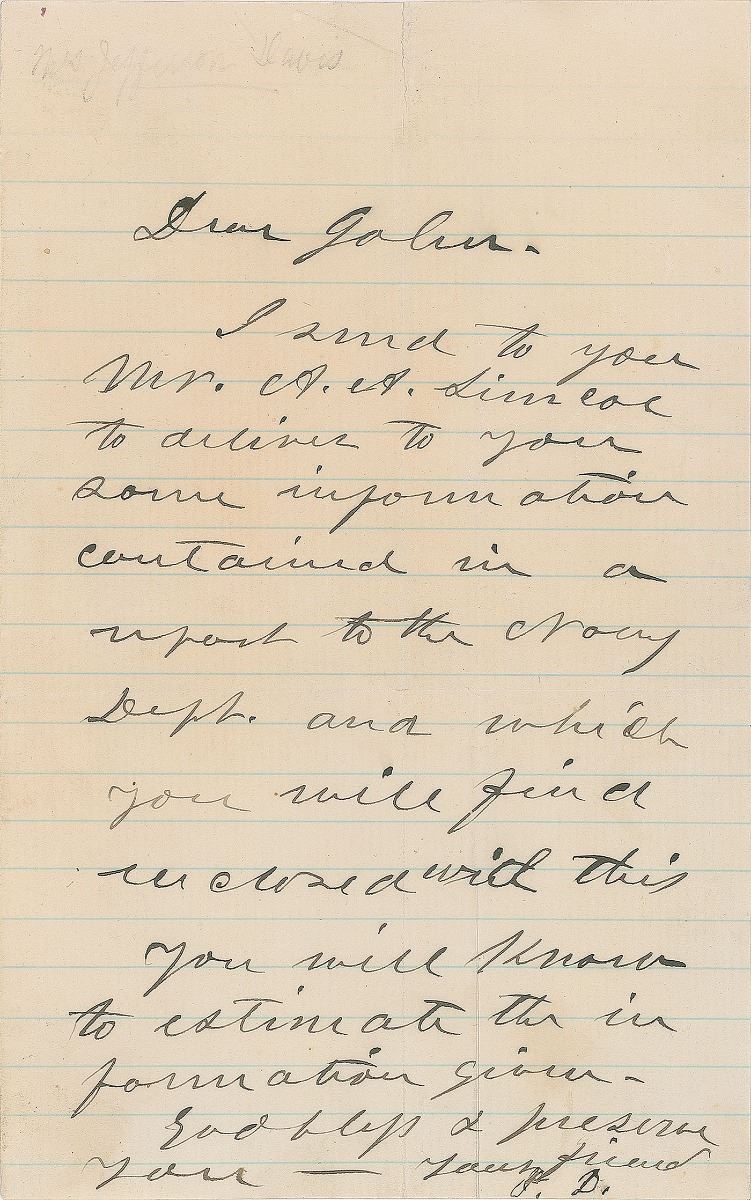 Mrs Jefferson Davis
Dear
I send to you
Mr. A. A. Simcoe
to deliver to you
some information
contained in a
report to the Navy
Dept. and which
you will find
inclosed with this
You will know
to estimate the in
formation given -
God bless & preserve
you — your friend
J. D.